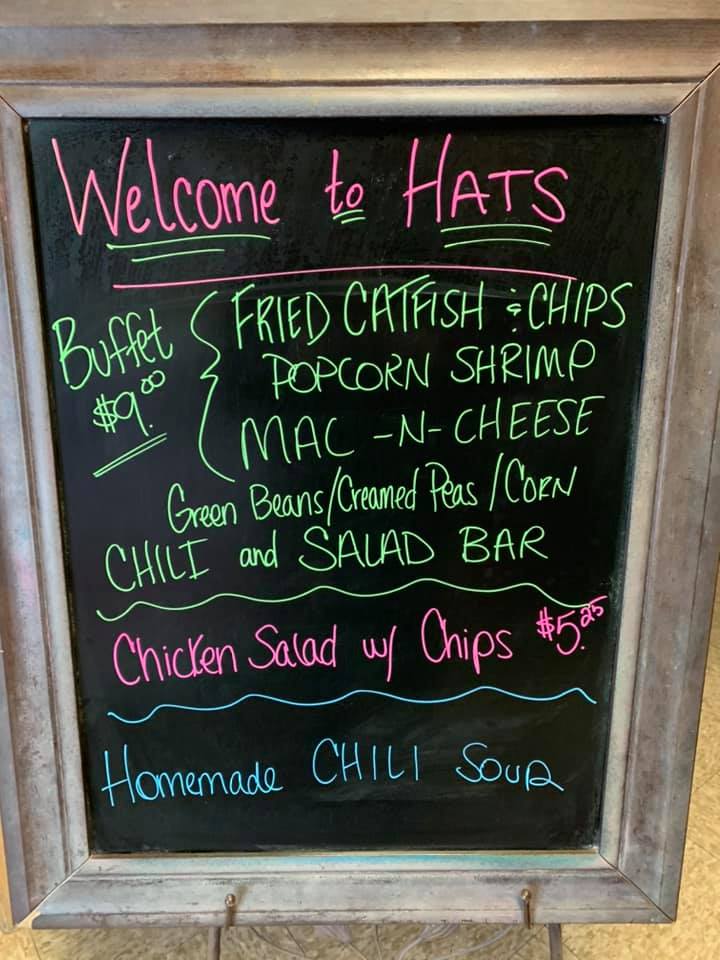 Welcome to HATS
Buffet $9.00
FRIED CATFISH & CHIPS
POPCORN SHRIMP
MAC -N- CHEESE
Green Beans/Creamed Peas/CORN
CHILI and SALAD BAR
Chicken Salad w/ Chips $5.25
Homemade CHILI SOUP